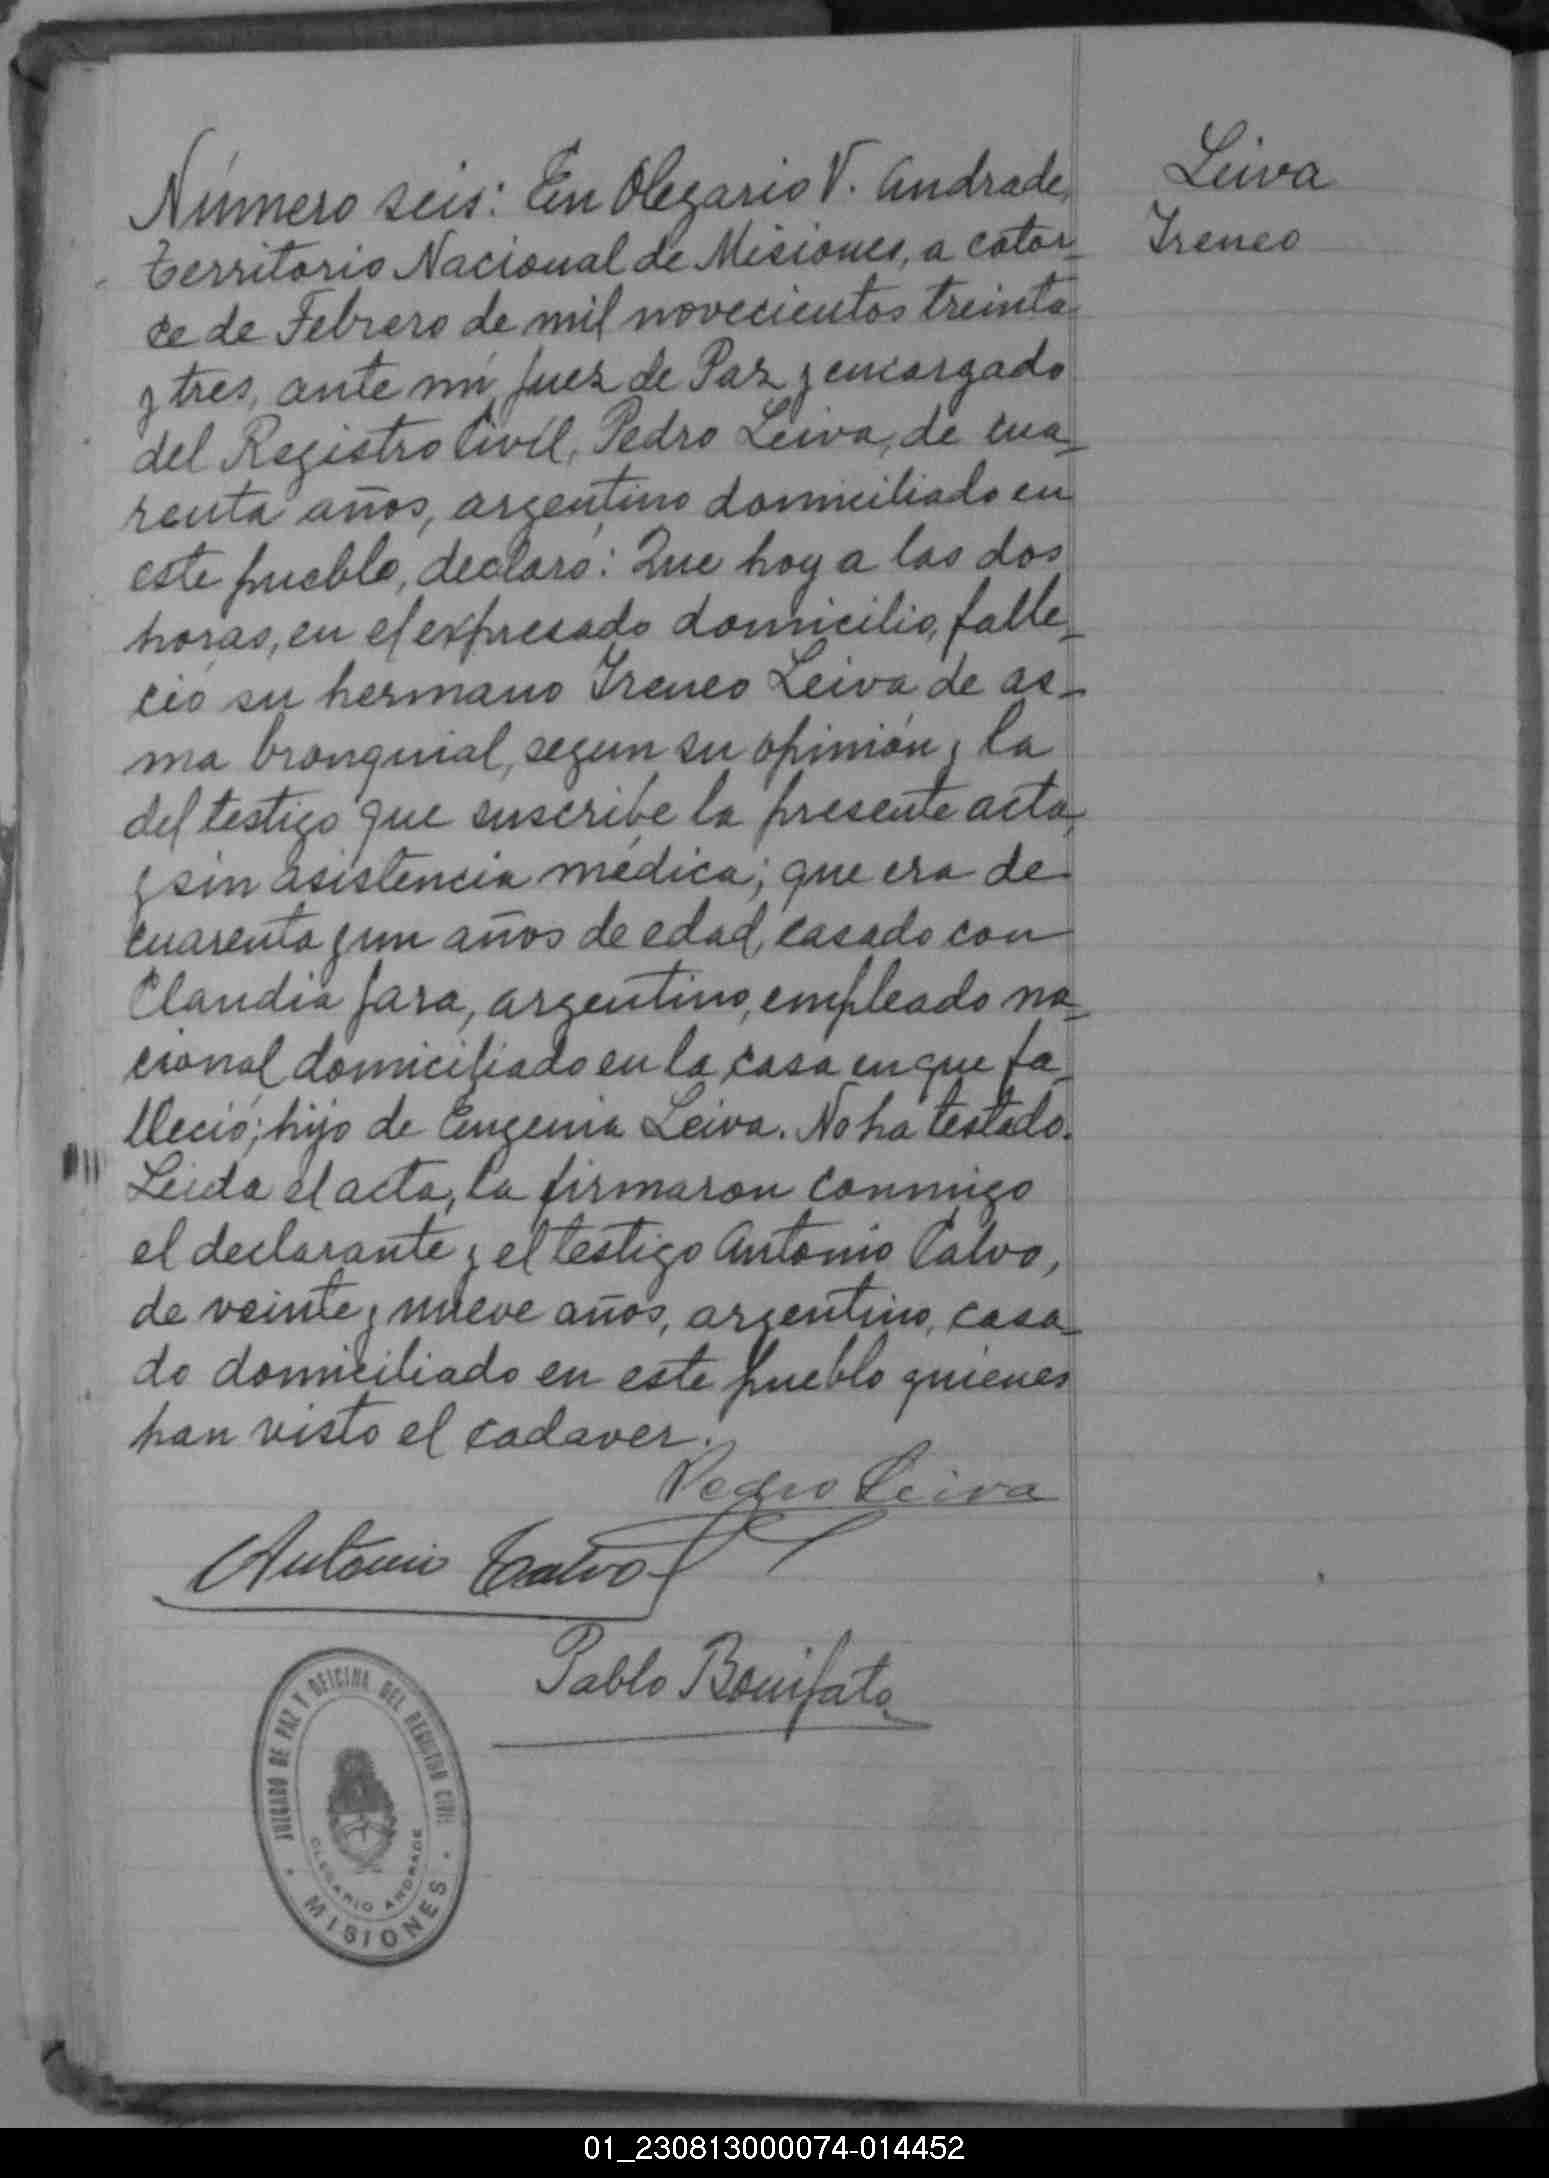 Leiva
Ireneo
Número seis: En Olegario V. Andrade,
Territorio Nacional de Misiones, a cator-
ce de Febrero de mil novecientos treinta
y tres, ante mí, Juez de Paz y encargado
del Registro Civil, Pedro Leiva, de cua-
renta años, argentino domiciliado en
este pueblo, declaró: Que hoy a las dos
horas, en el expresado domicilio, falle-
ció su hermano Ireneo Leiva de as-
ma bronquial, segun su opinión y la
del testigo que suscribe la presente acta,
y sin asistencia médica; que era de
cuarenta y un años de edad, casado con
Claudia Jara, argentino, empleado na-
cional domiciliado en la casa en que fa-
lleció; hijo de Eugenia Leiva. No ha testado.
Leida el acta, la firmaron conmigo
el declarante y el testigo Antonio Calvo,
de veinte y nueve años, argentino, casa-
do domiciliado en este pueblo quienes
han visto el cadaver.
Pedro Leiva
Antonio Calvo
Pablo Bonifato
JUZGADO DE PAZ Y OFICINA DEL REGISTRO CIVIL
OLEGARIO ANDRADE
MISIONES
01_230813000074-014452